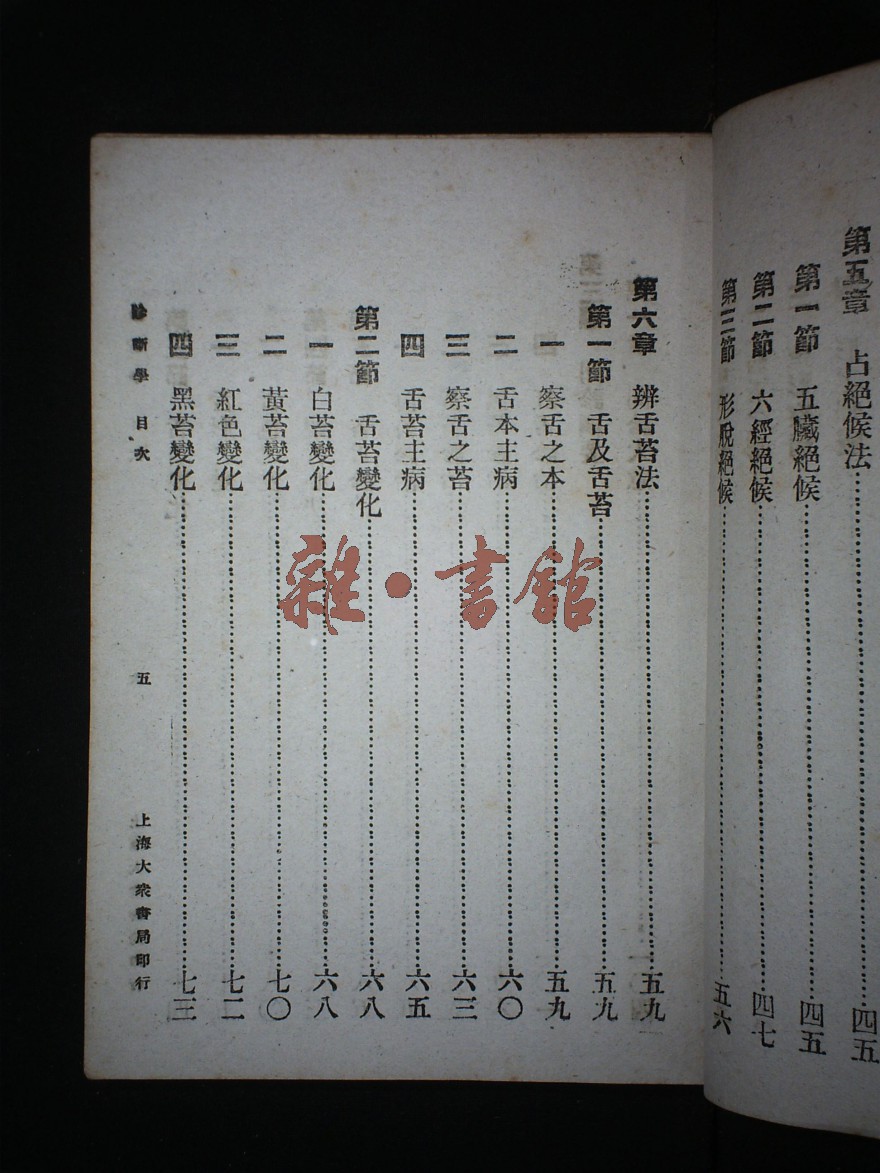 第五章　占絕候法……四五
第一節　五臟絕候……四五
第二節　六經絕候……四七
第三節　形脫絕候……五六
第六章　辨舌苔法……五九
第一節　舌及舌苔……五九
一　察舌之本……五九
二　舌本主病……六〇
三　察舌之苔……六三
四　舌苔主病……六五
第二節　舌苔變化……六八
一　白苔變化……六八
二　黃苔變化……七〇
三　紅色變化……七二
四　黑苔變化……七三
診斷學　目次　五　上海大衆書局印行
雜·書館